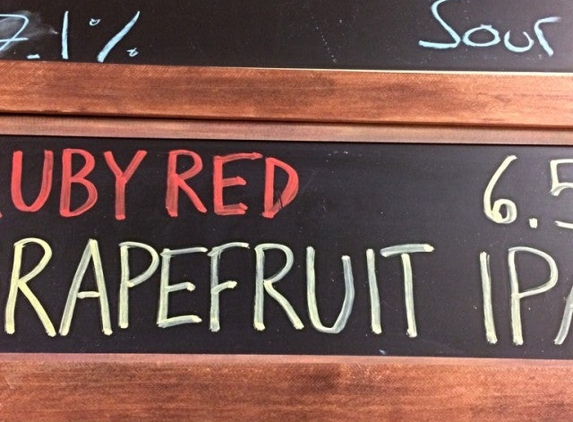 7.1% Sour
RUBY RED 6.5
GRAPEFRUIT IPA